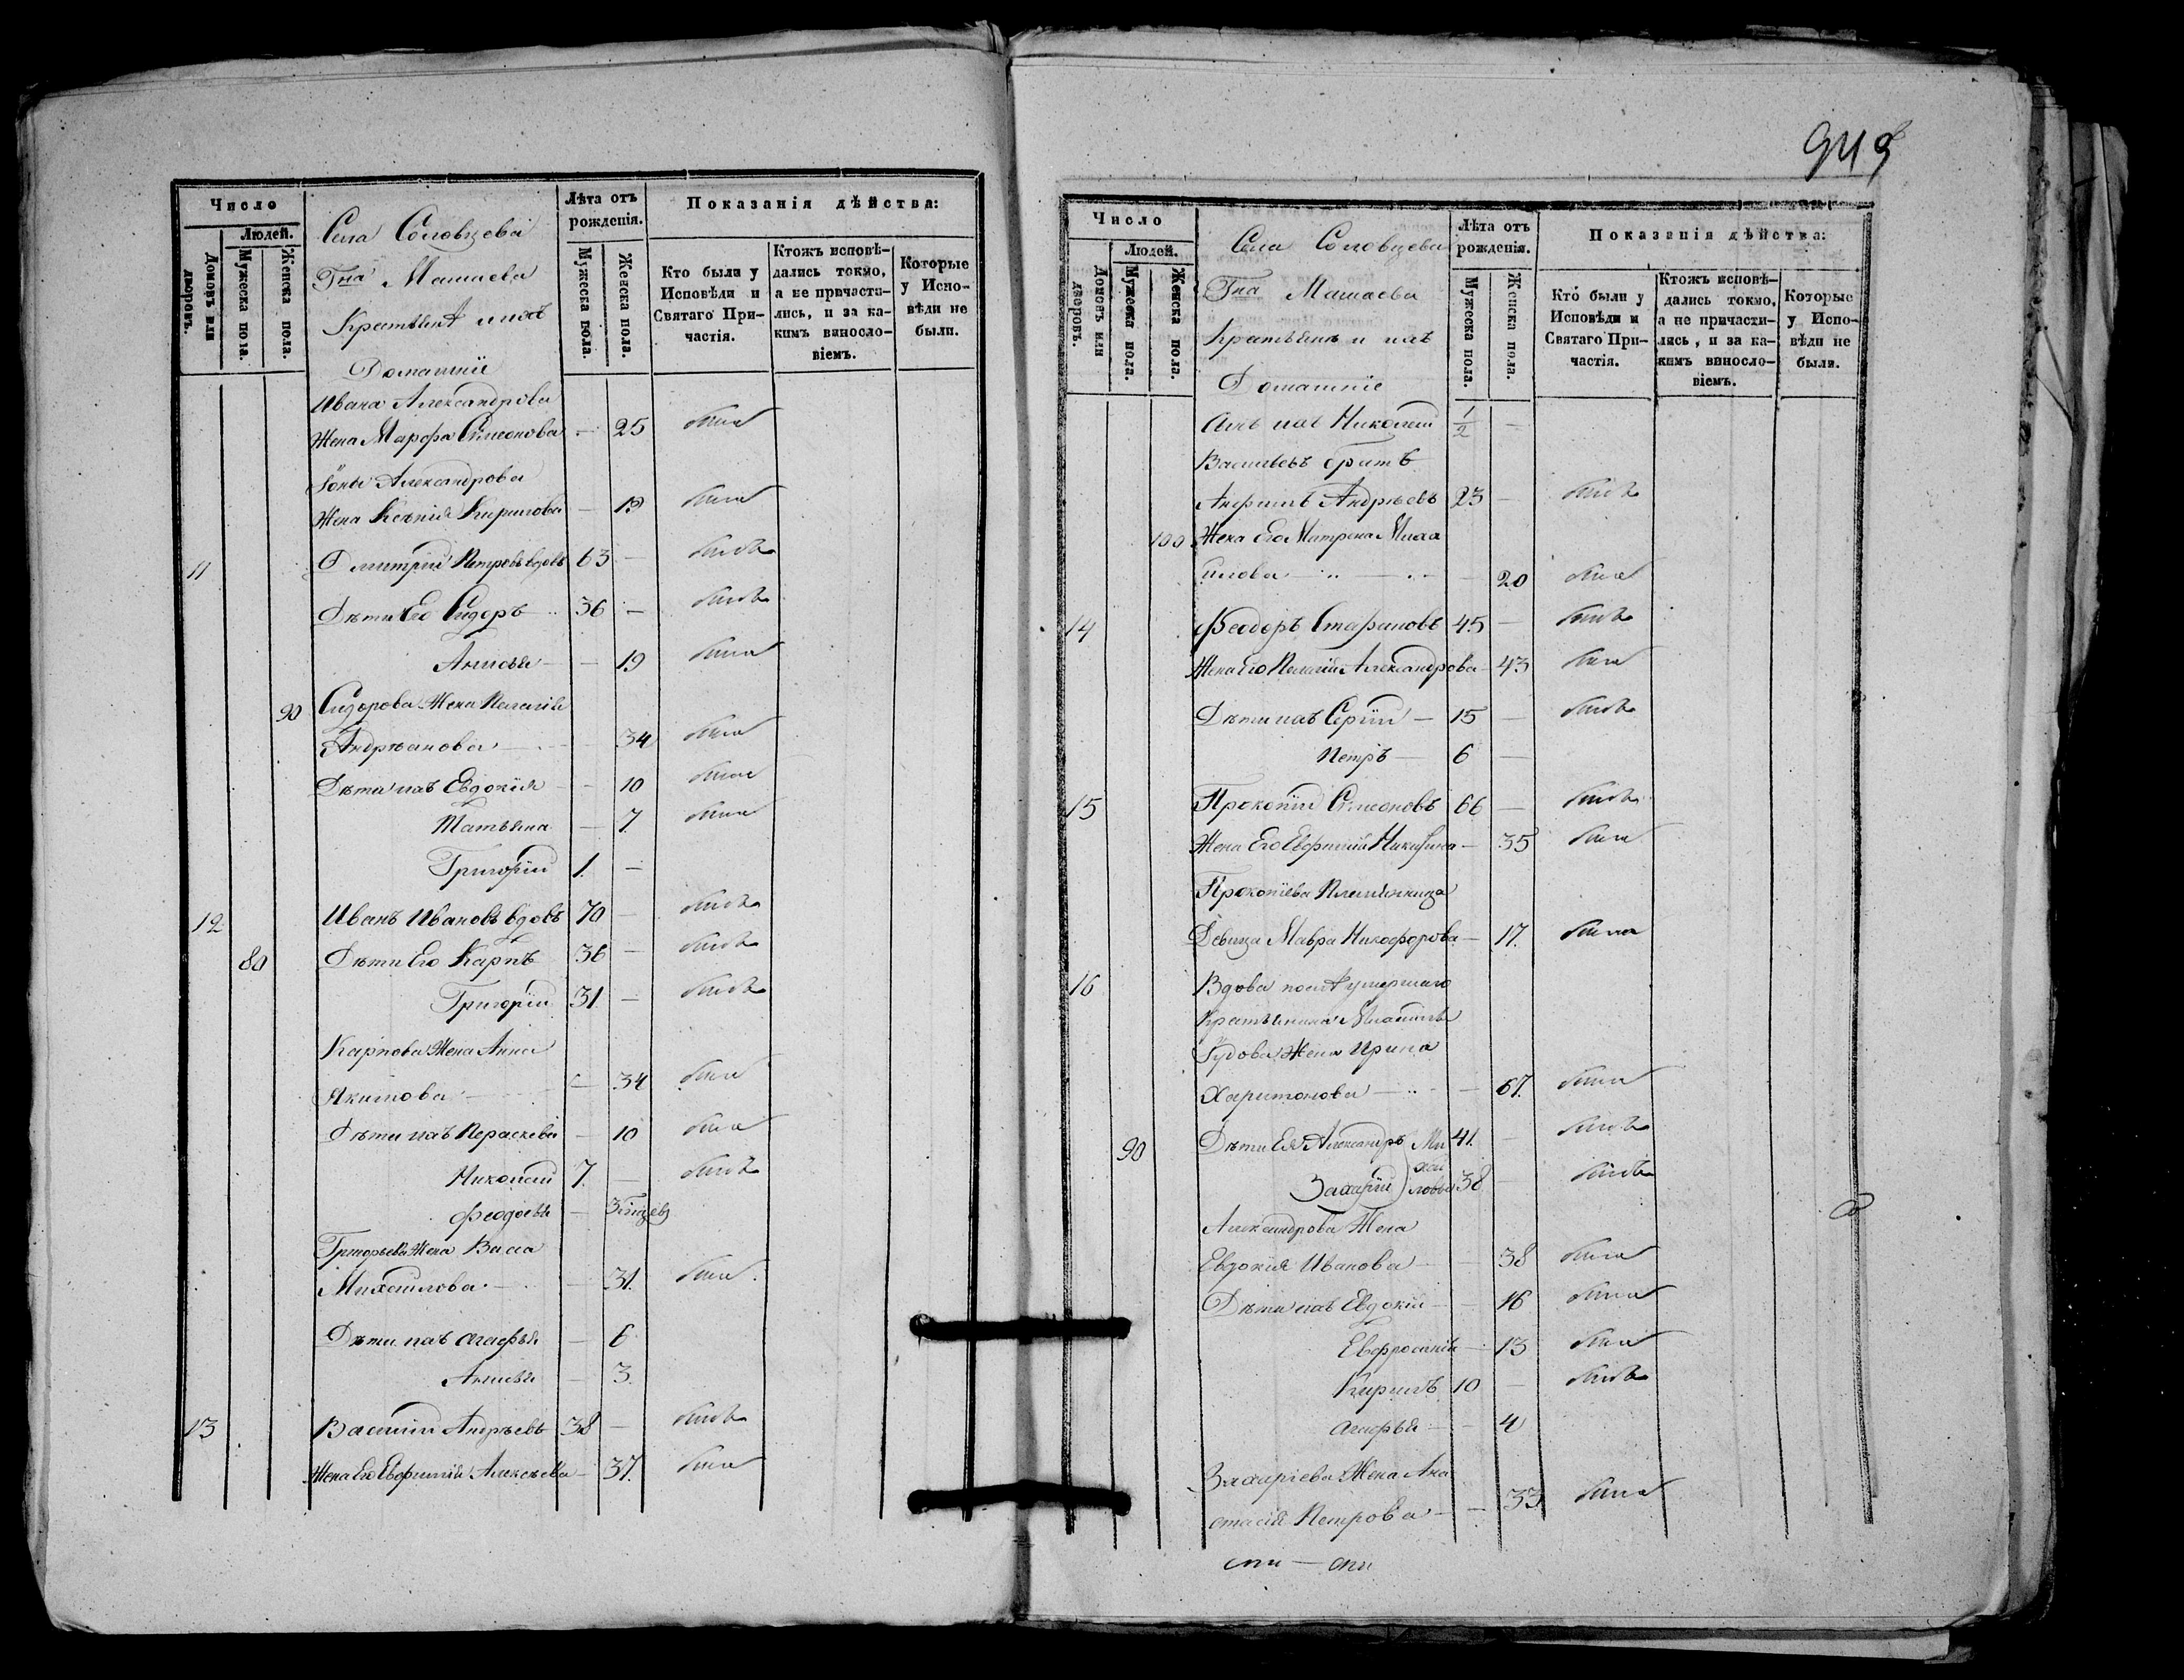 Число
Людей.
Домовъ или дворовъ.
Мужеска пола.
Женска пола.
Села Соловцева
Гна Машаева
Крестьяне и ихъ
Домашніе
Лѣта отъ рожденія.
Мужеска пола.
Женска пола.
Показанія дѣйства:
Кто были у Исповѣди и Святаго Причастія.
Ктожъ исповѣдались токмо, а не причастились, и за какимъ винословіемъ.
Которые у Исповѣди не были.
Ивана Александрова
Жена Марфа Симеонова — 25 была
Іоны Александрова
Жена Ксенія Кирилова — 19 была
11 Дмитрій Петровъ вдовъ 63 — былъ
Дѣти Его Сидоръ 36 — былъ
Анисья — 19 была
90 Сидорова Жена Пелагія
Андреанова — 34 была
Дѣти ихъ Евдокія — 10 была
Татьяна — 7 была
Григорій 1 —
12 Иванъ Ивановъ вдовъ 70 — былъ
80 Дѣти Его Карпъ 36 — былъ
Григорій 31 — былъ
Карпова Жена Анна
Якимова — 34 была
Дѣти ихъ Параскева — 10 была
Николай 7 — былъ
Феодосья — 3
Григорьева Жена Васса
Михайлова — 31. была
Дѣти ихъ Агафья — 6
Анисья — 3.
13 Василій Андреевъ 38 — былъ
Жена Его Евфимія Алексѣева — 37. была
949
Число
Людей.
Домовъ или дворовъ.
Мужеска пола.
Женска пола.
Села Соловцева
Гна Машаева
Крестьяне и ихъ
Домашніе
Лѣта отъ рожденія.
Мужеска пола.
Женска пола.
Показанія дѣйства:
Кто были у Исповѣди и Святаго Причастія.
Ктожъ исповѣдались токмо, а не причастились, и за какимъ винословіемъ.
Которые у Исповѣди не были.
Сынъ ихъ Николай 1/2 —
Васильевъ братъ
Анфимъ Андреевъ 23 — былъ
100 Жена Его Матрена Миха
илова — 20 была
14 Феодоръ Стефановъ 45 — былъ
Жена Его Пелагія Александрова — 43 была
Дѣти ихъ Сергій — 15 — былъ
Петръ — 6 —
15 Прокопій Симеоновъ 66 — былъ
Жена Его Евфимія Никифорова — 35 была
Прокопіева Племянница
Девица Мавра Никифорова — 17. была
16 Вдова послѣ умершаго
Крестьянина Михаила
Жена Ирина
Харитонова — 67. была
90 Дѣти Ея Александръ Ми 41. — былъ
Захарій хай ловы 38 — былъ
Александрова Жена
Евдокія Иванова — 38 была
Дѣти ихъ Евдокія — 16 была
Евфросинія — 13 была
Кирилъ 10 — былъ
Агафья — 4
Захаріева Жена Ана
стасія Петрова — 33 была